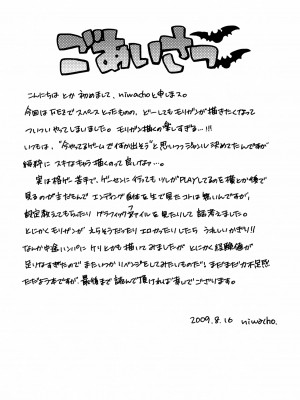 ごあいさつ
こんにちは とか 初めまして、niwachoと申します。
今回は TOEZで スペースとったものの、どーしても モリガンが 描きたくなって
ついつい やってしまいました。モリガン描くの 楽しすぎる…!!!
いつもは、"今やってるゲームで 何か出そう"と思いつつジャンル 決めてたんですが
純粋に スキなキャラ 描くのって 良いなァ…。
実は 格ゲー 苦手で、ゲーセンに 行っても ツレがPLAYしてるのを 横とか後で
見るのが まだもんで エンディング 自体も 生で見たコトは 無いんですが、
設定 教えてもらったり グラフィックファイルを 見たりして 話 考えました。
とにかく モリガンが えらそうだったり エロかったりしてたら うれしいかぎり!!
なんか 中途ハンパに ケリとかも 描いてみましたが とにかく 経験値が
足りなすぎたので またいつか リベンジをしてみたいものだ! まだまだ力不足
ただよう本ですが、最後まで 読んで頂ければ 幸いでございます。
2009.8.16 niwacho.